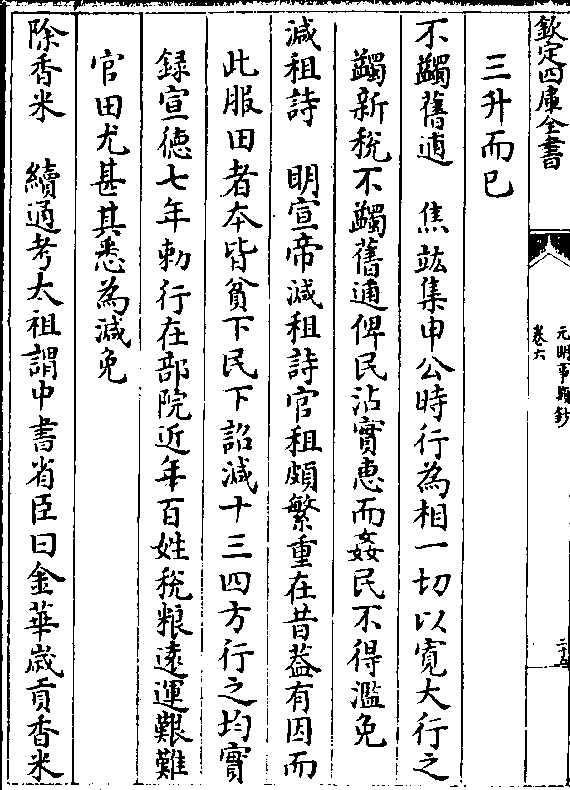 欽定四庫全書
元明事類鈔
卷六
三升而已
不蠲舊逋　焦竑集申公時行為相一切以寛大行之
蠲新税不蠲舊逋俾民沾實惠而姦民不得濫免
減租詩　明宣帝減租詩官租頗繁重在昔葢有因而
此服田者本皆貧下民下詔減十三四方行之均實
録宣徳七年勅行在部院近年百姓税粮逺運艱難
官田尤甚其悉為減免
除香米　續通考太祖謂中書省臣曰金華歲貢香米